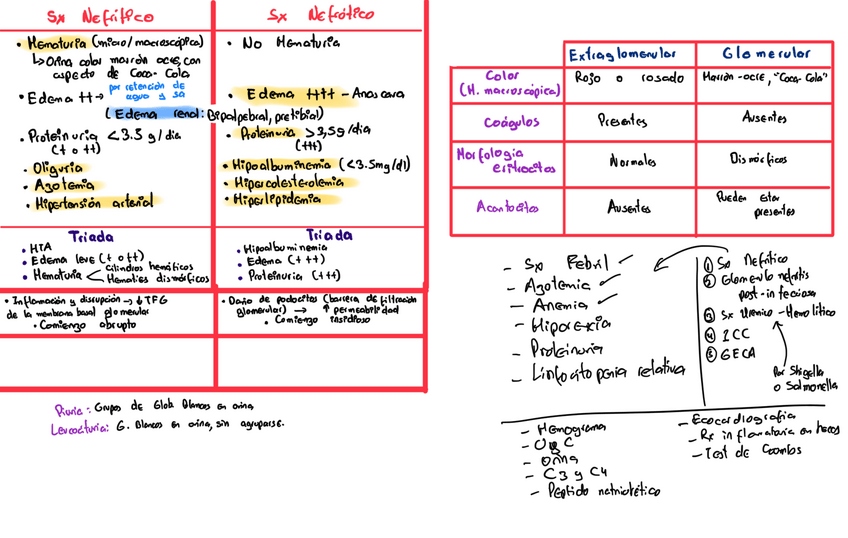 Sx Nefrítico
• Hematuria (micro/macroscópica)
↳ Orina color marrón ocre, con
aspecto de Coca-Cola
• Edema ++ → por retención de
agua y sa
(Edema renal: Bipalpebral, pretibial)
• Proteinuria < 3.5 g/dia
(+ o ++)
• Oliguria
• Azotemia
• Hipertensión arterial
Triada
• HTA
• Edema leve (+ o ++)
• Hematuria < Cilindros hemáticos
Hematíes dismórficos
• Inflamación y disrupción → ↓ TFG
de la membrana basal glomerular
• Comienzo abrupto
Sx Nefrótico
• No Hematuria
• Edema ++++ - Anasarca
• Proteinuria > 3,5 g/dia
(+++)
• Hipoalbuminemia (<3.5mg/dl)
• Hipercolesterolemia
• Hiperlipidemia
Triada
• Hipoalbuminemia
• Edema (+++)
• Proteinuria (+++)
• Daño de podocitos (barrera de filtración
glomerular) → ↑ permeabilidad
• Comienzo insidioso
Piuria: Grupos de Glob. Blancos en orina
Leucocituria: G. Blancos en orina, sin agruparse.
Extraglomerular Glomerular
Color
(H. macroscópica) Rojo o rosado Marrón-ocre, "Coca-Cola"
Coágulos Presentes Ausentes
Morfología
eritrocitos Normales Dismórficos
Acantocitos Ausentes Pueden estar
presentes
- Sx Febril ✓
- Azotemia ✓
- Anemia ✓
- Hiporexia
- Proteinuria
- Linfocitopenia relativa
① Sx Nefrítico
② Glomerulonefritis
post-infecciosa
③ Sx Urémico-Hemolítico
④ ICC
⑤ GECA
Por Shigella
o Salmonella
- Hemograma
- C
- Orina
- C3 y C4
- Peptido natriurético
- Ecocardiografía
- Rx
- Test de Coombs